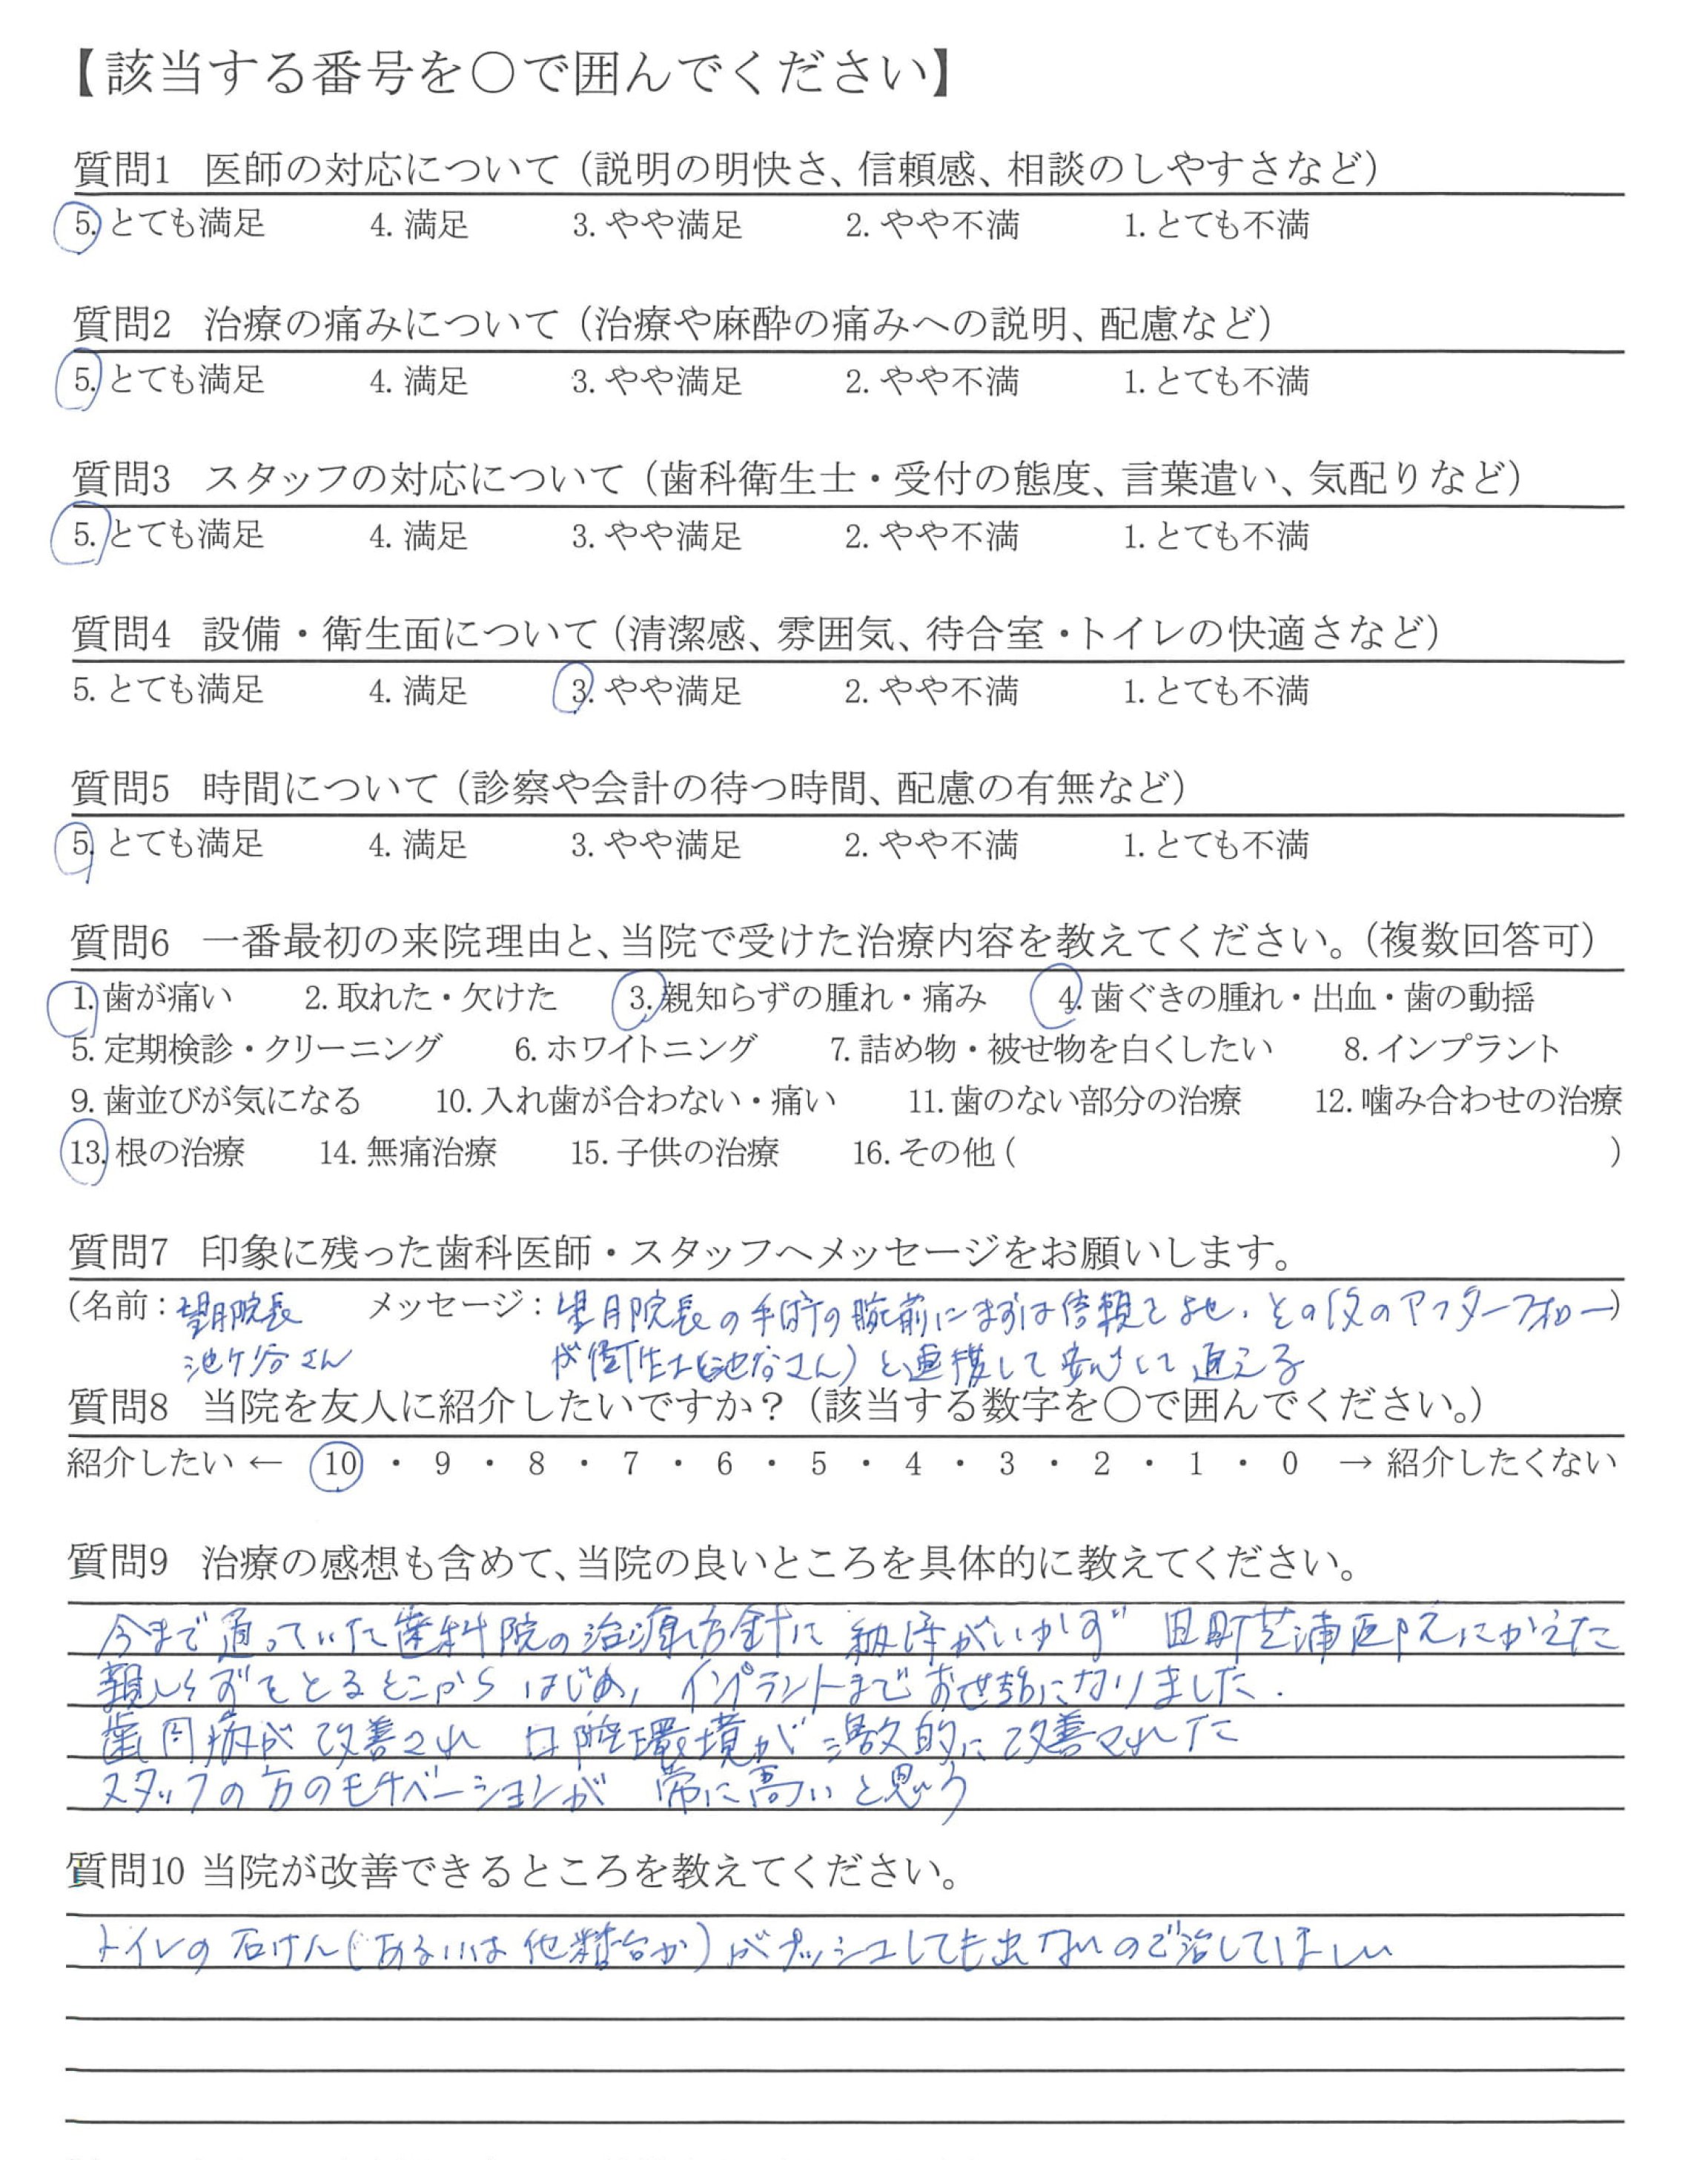 【該当する番号を○で囲んでください】
質問1 医師の対応について（説明の明快さ、信頼感、相談のしやすさなど）
5. とても満足 4. 満足 3. やや満足 2. やや不満 1. とても不満
質問2 治療の痛みについて（治療や麻酔の痛みへの説明、配慮など）
5. とても満足 4. 満足 3. やや満足 2. やや不満 1. とても不満
質問3 スタッフの対応について（歯科衛生士・受付の態度、言葉遣い、気配りなど）
5. とても満足 4. 満足 3. やや満足 2. やや不満 1. とても不満
質問4 設備・衛生面について（清潔感、雰囲気、待合室・トイレの快適さなど）
5. とても満足 4. 満足 3. やや満足 2. やや不満 1. とても不満
質問5 時間について（診察や会計の待つ時間、配慮の有無など）
5. とても満足 4. 満足 3. やや満足 2. やや不満 1. とても不満
質問6 一番最初の来院理由と、当院で受けた治療内容を教えてください。（複数回答可）
1. 歯が痛い 2. 取れた・欠けた 3. 親知らずの腫れ・痛み 4. 歯ぐきの腫れ・出血・歯の動揺
5. 定期検診・クリーニング 6. ホワイトニング 7. 詰め物・被せ物を白くしたい 8. インプラント
9. 歯並びが気になる 10. 入れ歯が合わない・痛い 11. 歯のない部分の治療 12. 噛み合わせの治療
13. 根の治療 14. 無痛治療 15. 子供の治療 16. その他（ ）
質問7 印象に残った歯科医師・スタッフへメッセージをお願いします。
（名前：望月院長 メッセージ：望月院長の手術の腕前にまずは信頼をよせ、その後のアフターフォロー）
池ケ谷さん が衛生士（池谷さん）と連携して安心して通える
質問8 当院を友人に紹介したいですか？（該当する数字を○で囲んでください。）
紹介したい ← 10 ・ 9 ・ 8 ・ 7 ・ 6 ・ 5 ・ 4 ・ 3 ・ 2 ・ 1 ・ 0 → 紹介したくない
質問9 治療の感想も含めて、当院の良いところを具体的に教えてください。
今まで通っていた歯科院の治療方針に納得がいかず 田町芝浦医院にかえた
親しらずをとるとこからはじめ、インプラントまでお世話になりました.
歯周病が改善され 口腔環境が激的に改善された
スタッフの方のモチベーションが 常に高いと思う
質問10 当院が改善できるところを教えてください。
トイレの石けん（あるいは 化粧台か）がプッシュしても出ないので治してほしい